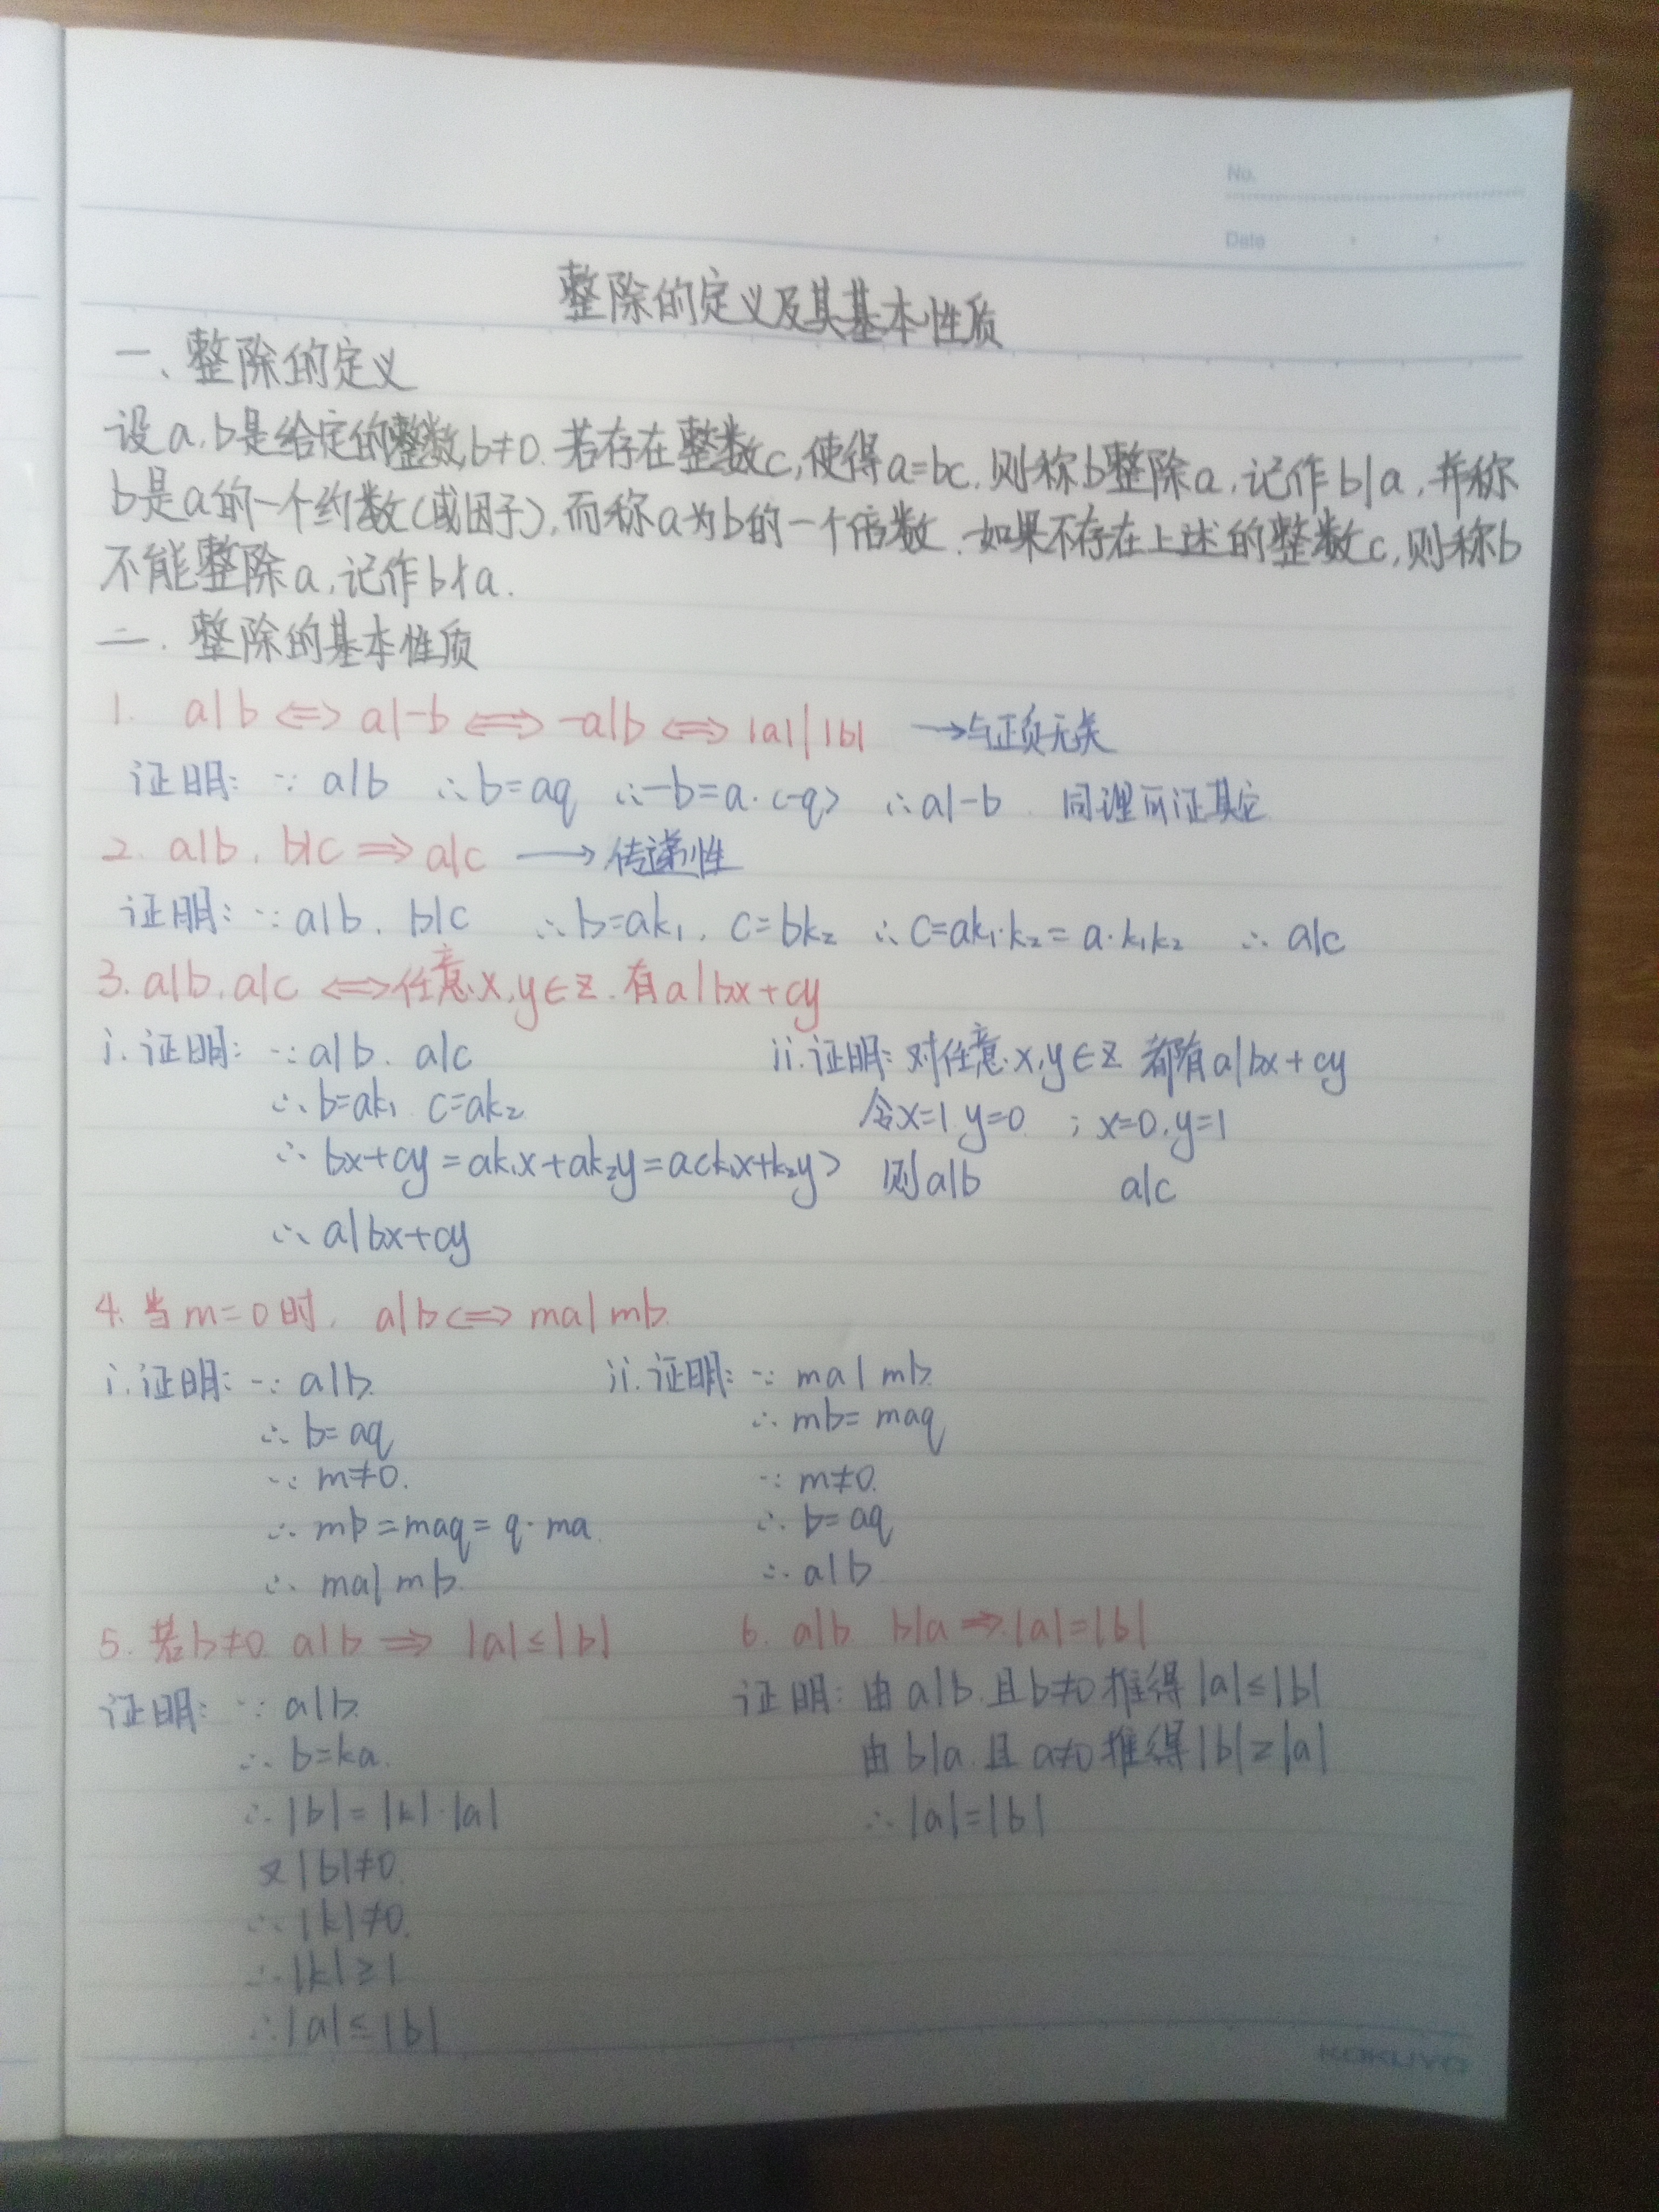 No.
Date
整除的定义及其基本性质
一、整除的定义
设a,b是给定的整数,b≠0.若存在整数c,使得a=bc,则称b整除a,记作b|a,并称
b是a的一个约数(或因子),而称a为b的一个倍数.如果不存在上述的整数c,则称b
不能整除a,记作b∤a.
二.整除的基本性质
1. a|b ⟺ a|-b ⟺ -a|b ⟺ |a| | |b| →与正负无关
证明: ∵ a|b ∴b=aq ∴-b=a·(-q) ∴a|-b 同理可证其它
2. a|b, b|c ⟹ a|c ⟶ 传递性
证明: ∵ a|b, b|c ∴b=ak₁, c=bk₂ ∴c=ak₁·k₂=a·k₁k₂ ∴ a|c
3. a|b, a|c ⟺任意x,y∈Z.有a|bx+cy
i.证明: ∵a|b. a|c
∴b=ak₁ c=ak₂
∴ bx+cy=ak₁x+ak₂y=a(k₁x+k₂y)
∴ a|bx+cy
ii.证明: 对任意x,y∈Z 都有a|bx+cy
令x=1 y=0 ; x=0,y=1
则a|b a|c
4.当m=0时, a|b⟺ma|mb
i.证明: ∵ a|b
∴ b=aq
∵ m≠0.
∴ mb=maq=q·ma
∴ ma|mb.
ii.证明: ∵ ma|mb
∴ mb=maq
∵ m≠0.
∴ b=aq
∴ a|b
5.若b≠0 a|b ⟹ |a|≤|b|
证明: ∵ a|b
∴ b=ka.
∴|b|=|k|·|a|
又|b|≠0.
∴|k|≠0.
∴|k|≥1
∴|a|≤|b|
6. a|b b|a ⟹|a|=|b|
证明: 由a|b.且b≠0推得|a|≤|b|
由b|a.且a≠0推得|b|≥|a|
∴|a|=|b|
KOKUYO